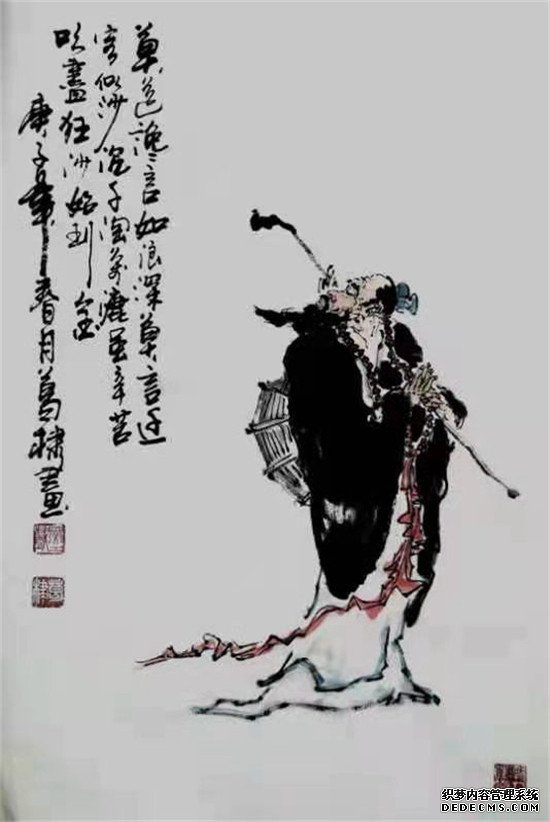 莫道讒言如浪深莫言迁
客似沙沉千淘萬漉虽辛苦
吹盡狂沙始到金
庚子年春月葛棣畫
织梦内容管理系统
DEDECMS.COM